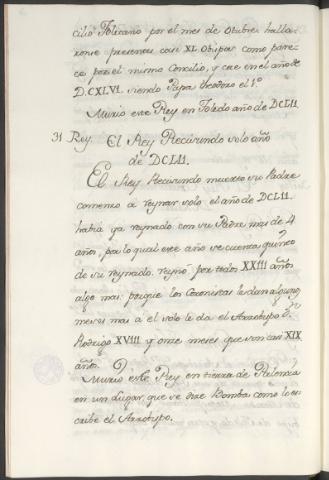 cilio Toledano por el mes de Otubre: halla
ronse presentes casi XL. Obispos como pare-
ce por el mismo Concilio, y cae en el año de
D.CXLVI. siendo Papa Theodoro el 1º
Murio este Rey en Toledo año de DCLII.
31 Rey. El Rey Recisundo solo año
de DCLII.
El Rey Recisundo muerto su Padre
comenzo a reynar solo el año de DCLII.
habia ya reynado con su Padre mas de 4
años, por lo qual este año se cuenta quinto
de su reynado. reynó por todos XXIII años
algo mas: porque los Coronistas le dan algunos
meses mas á el solo le da el Arzobispo Dn
Rodrigo XVIII y once meses que son casi XIX
años.
Murio este Rey en tierra de Palencia
en un Lugar, que se dize Bamba como lo es-
cribe el Arzobispo.